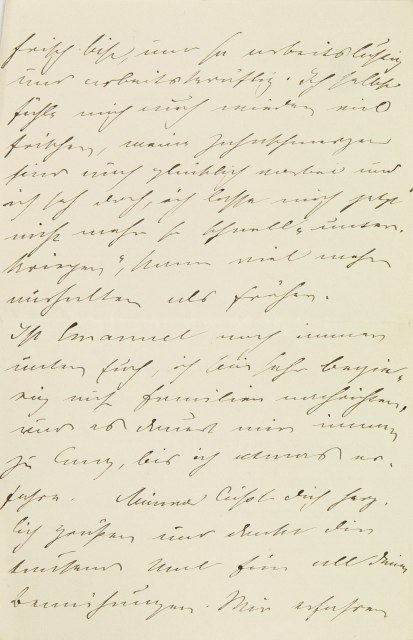 frisch bist, und so arbeitslustig
und arbeitskräftig. Ich selbst
fühle mich auch wieder viel
frischer, meine Zahnschmerzen
sind auch glücklich vorbei und
ich seh doch, ich lasse mich jetzt
nicht mehr so schnell „unter-
kriegen", kann viel mehr
aushalten als früher.
Ist Emanuel noch immer
unter Euch, ich bin sehr begie-
rig auf Familien nachrichten,
und es dauert mir immer
zu lang, bis ich etwas er-
fahre. Minna läßt Dich herz-
lich grüßen und dankt Dir
tausend Mal für all Deine
Bemühungen. Wir erfahren